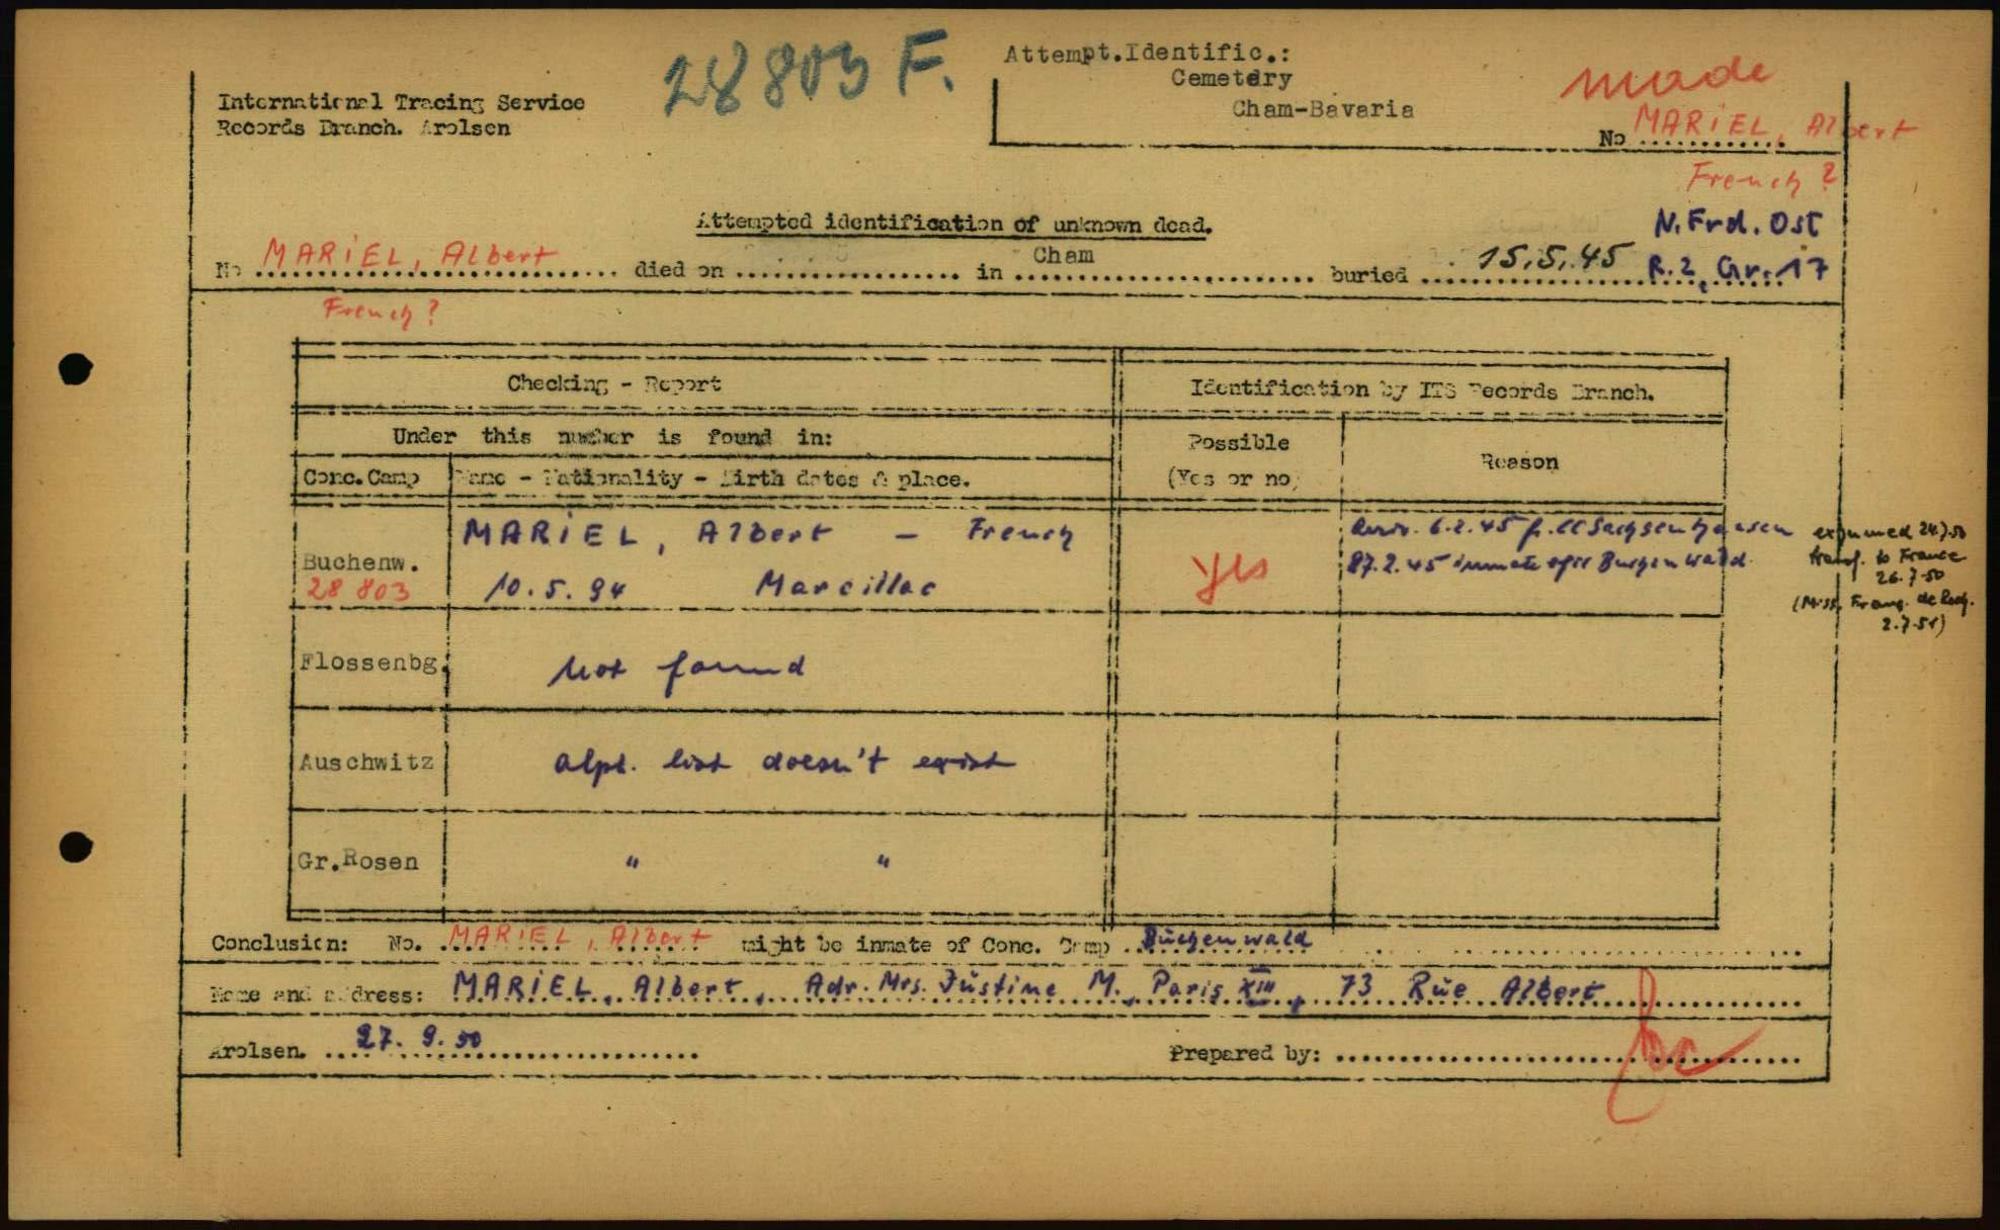 28803 F.
Attempt.Identific.:
Cemetery
Cham-Bavaria
made
International Tracing Service
Records Branch. Arolsen
No MARIEL, Albert
French ?
Attempted identification of unknown dead.
N. Frd. Ost
No MARIEL, Albert died on in Cham buried 15.5.45 R.2, Gr. 17
French ?
Checking - Report
Identification by ITS Records Branch.
Under this number is found in:
Possible
(Yes or no)
Reason
Conc.Camp Name - Nationality - Birth dates & place.
Buchenw.
28 803
MARIEL, Albert - French
10.5.94 Marcillac
yes
6.2.45 fr. CC Sachsenhausen
2.45 inmate of CC Buchenwald
exhumed 24.7.50
transf. to France
26.7.50
(Miss. Franç. de Rech.
2.7.51)
Flossenbg. not found
Auschwitz alph. list doesn't exist
Gr.Rosen " "
Conclusion: No. MARIEL, Albert might be inmate of Conc. Camp Buchenwald
Name and address: MARIEL, Albert, Adr. Mrs. Justine M., Paris XIII, 73 Rue Albert
Arolsen. 27. 9. 50
Prepared by: